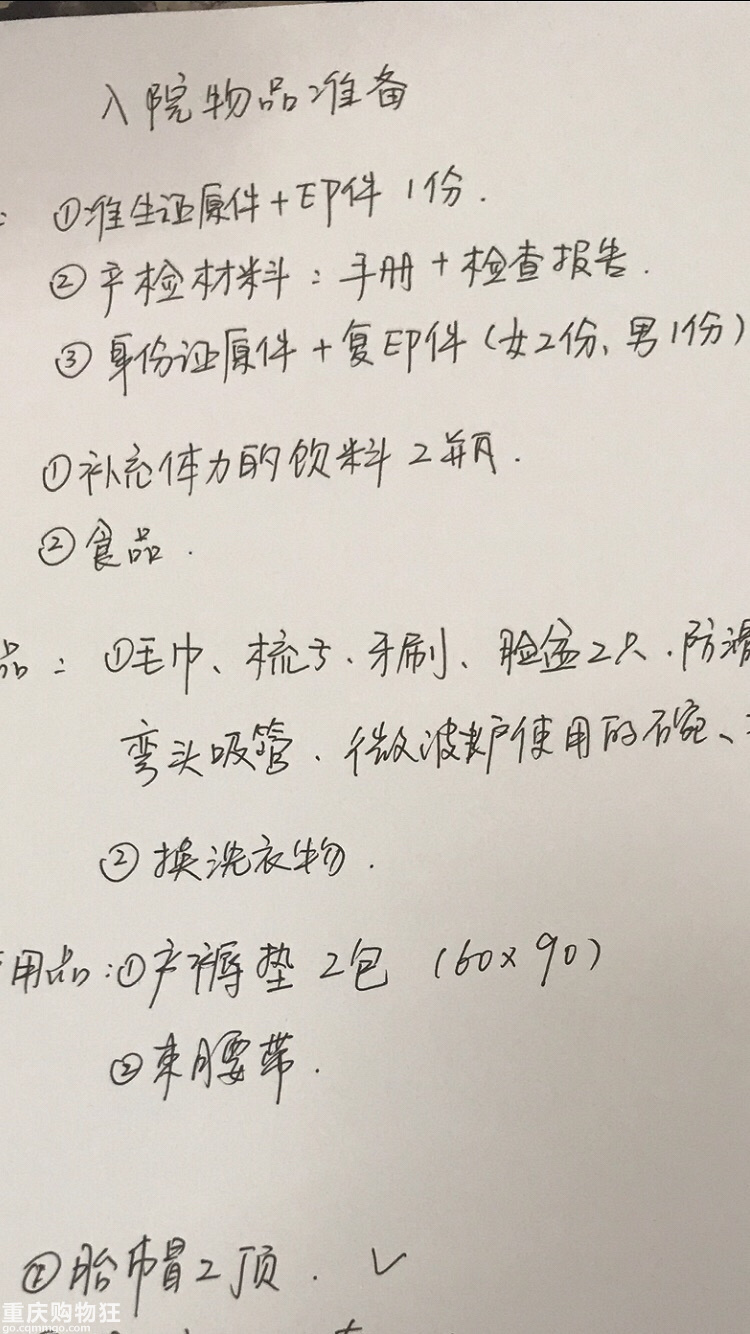 入院物品准备
: ①准生证原件+印件1份.
②产检材料:手册+检查报告.
③身份证原件+复印件(女2份、男1份)
①补充体力的饮料2瓶.
②食品.
品:①毛巾、梳子、牙刷、脸盆2只、防滑
弯头吸管、微波炉使用的碗、
②换洗衣物.
用品:①产褥垫2包(60×90)
②束腰带.
②胎帽2顶. ✓
重庆购物狂
go.cqmmgo.com